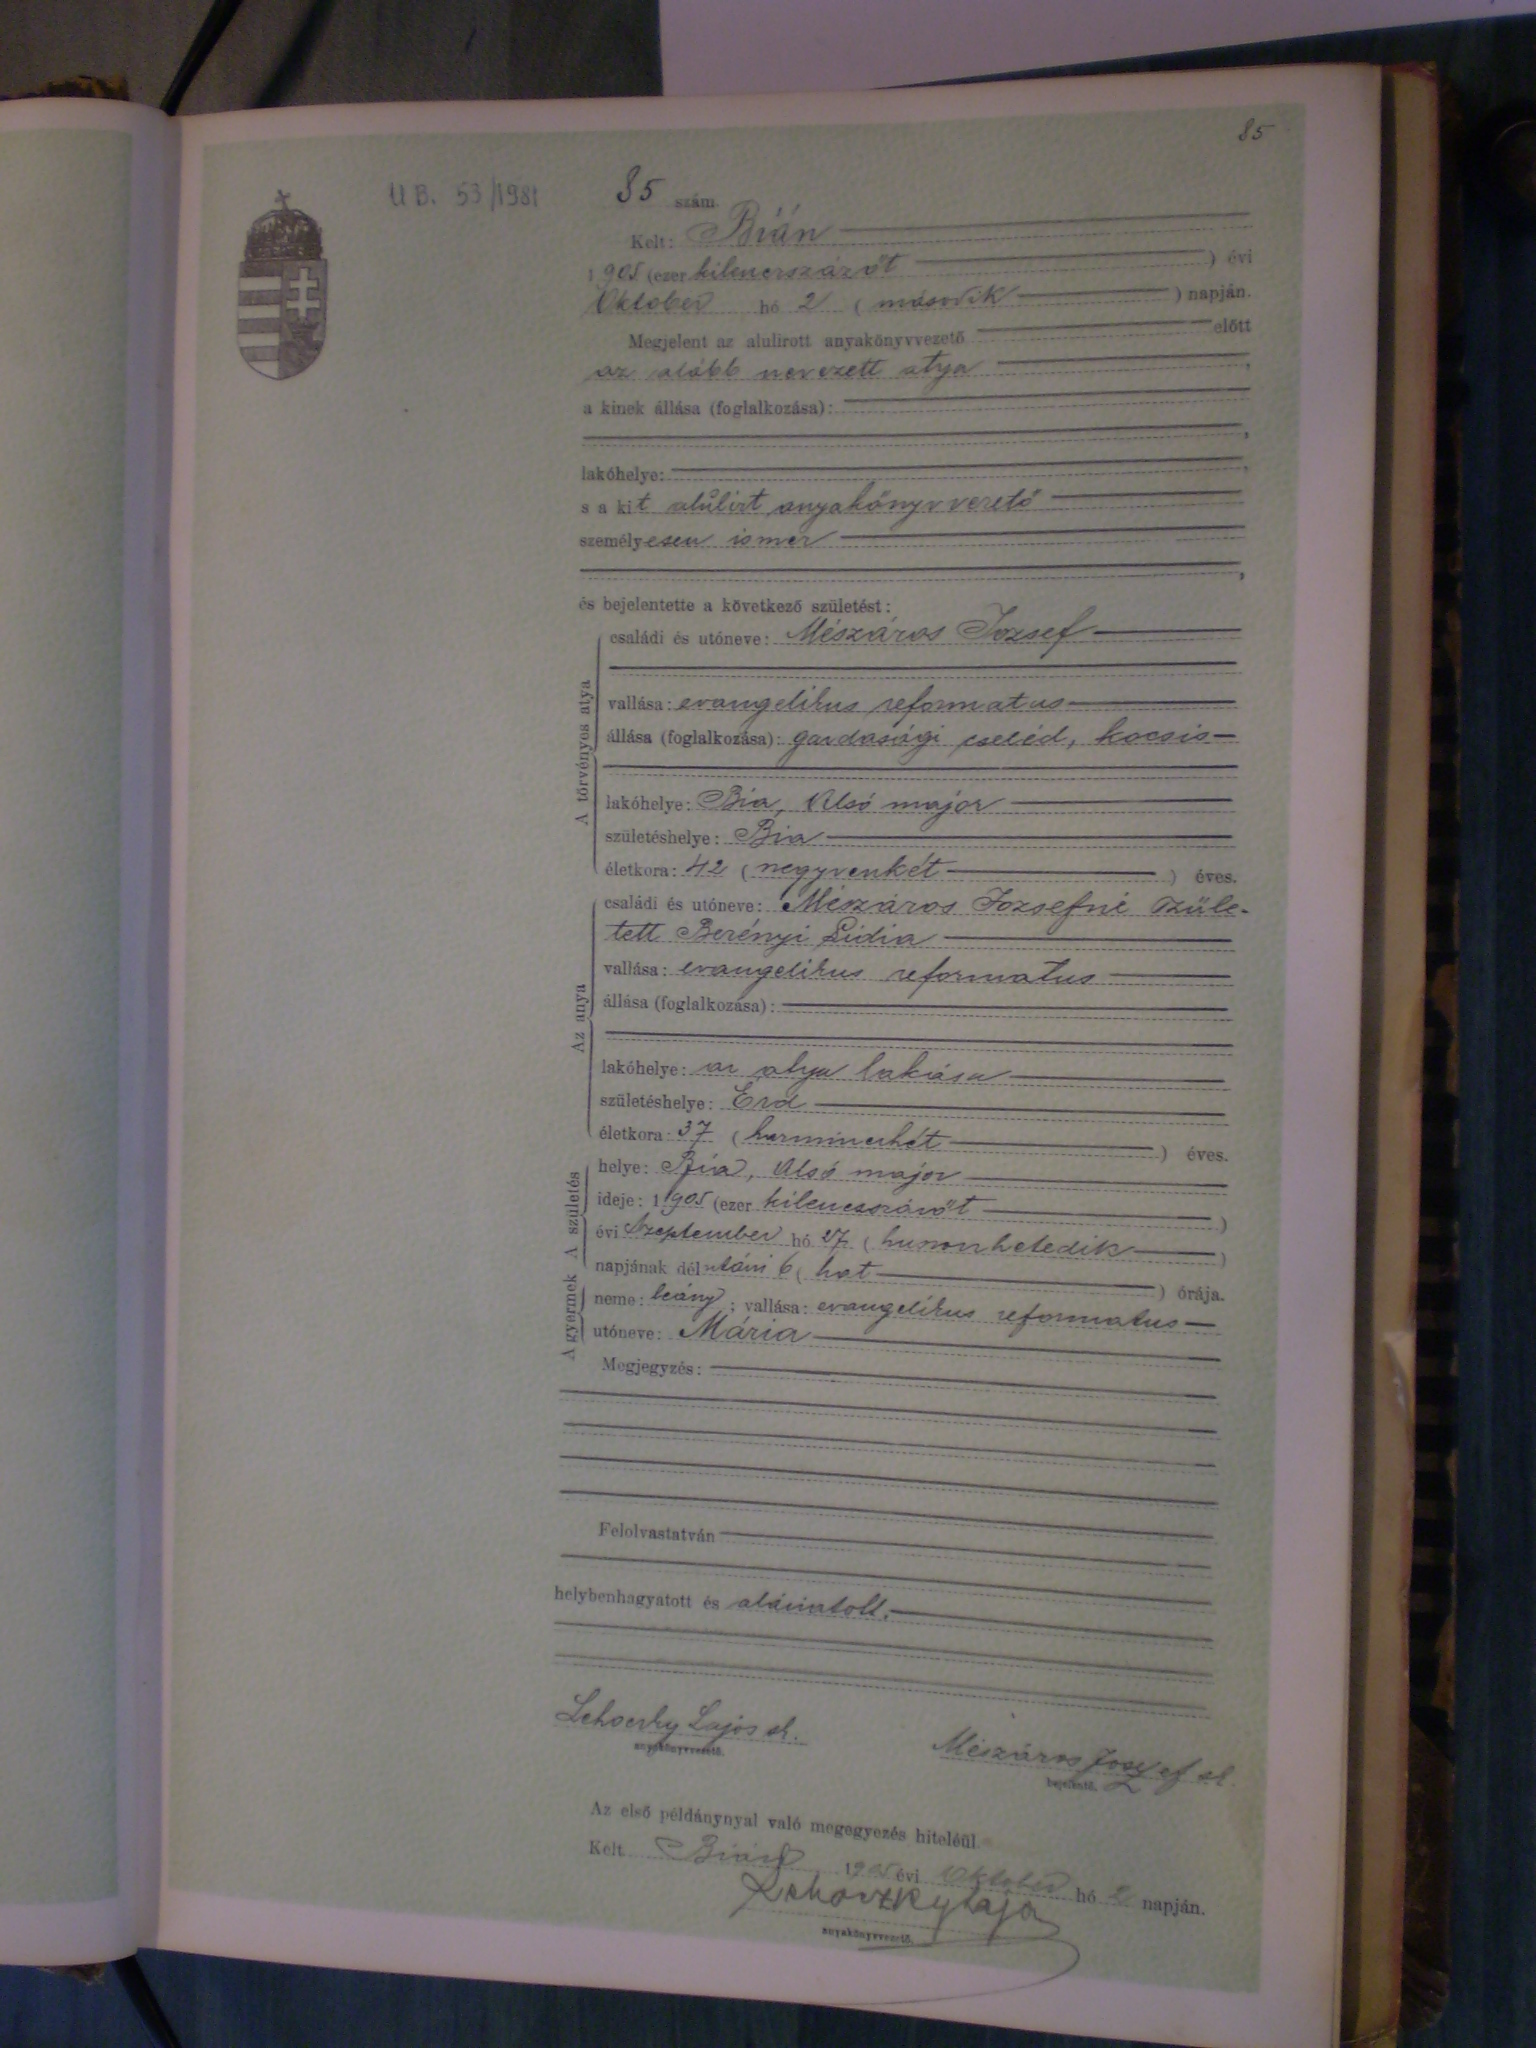 85
U B. 53/1981
85 szám.
Kelt: Bián
1905 (ezer kilencszázöt) évi
Oktober hó 2 (második) napján.
Megjelent az alulirott anyakönyvvezető előtt
az alább nevezett atya,
a kinek állása (foglalkozása):
lakóhelye:
s a kit alulirt anyakönyvvezető
személyesen ismer
és bejelentette a következő születést:
A törvényes atya
családi és utóneve: Mészáros József
vallása: evangelikus reformatus
állása (foglalkozása): gazdasági cseléd, kocsis
lakóhelye: Bia, Alsó major
születéshelye: Bia
életkora: 42 (negyvenkét) éves.
Az anya
családi és utóneve: Mészáros Józsefné szüle-
tett Berényi Lidia
vallása: evangelikus reformatus
állása (foglalkozása):
lakóhelye: az atya lakása
születéshelye: Érd
életkora: 37 (harminczhét) éves.
A születés
helye: Bia, Alsó major
ideje: 1905 (ezer kilencszázöt)
évi Szeptember hó 27 (huszonhetedik)
napjának délutáni 6 (hat) órája.
A gyermek
neme: leány; vallása: evangelikus reformatus
utóneve: Mária
Megjegyzés:
Felolvastatván
helybenhagyatott és aláiratott.
Lehoczky Lajos sk.
anyakönyvvezető.
Mészáros József sk.
bejelentő.
Az első példánynyal való megegyezés hiteléül
Kelt Bián 1905 évi Oktober hó 2 napján.
Lehoczky Lajos
anyakönyvvezető.